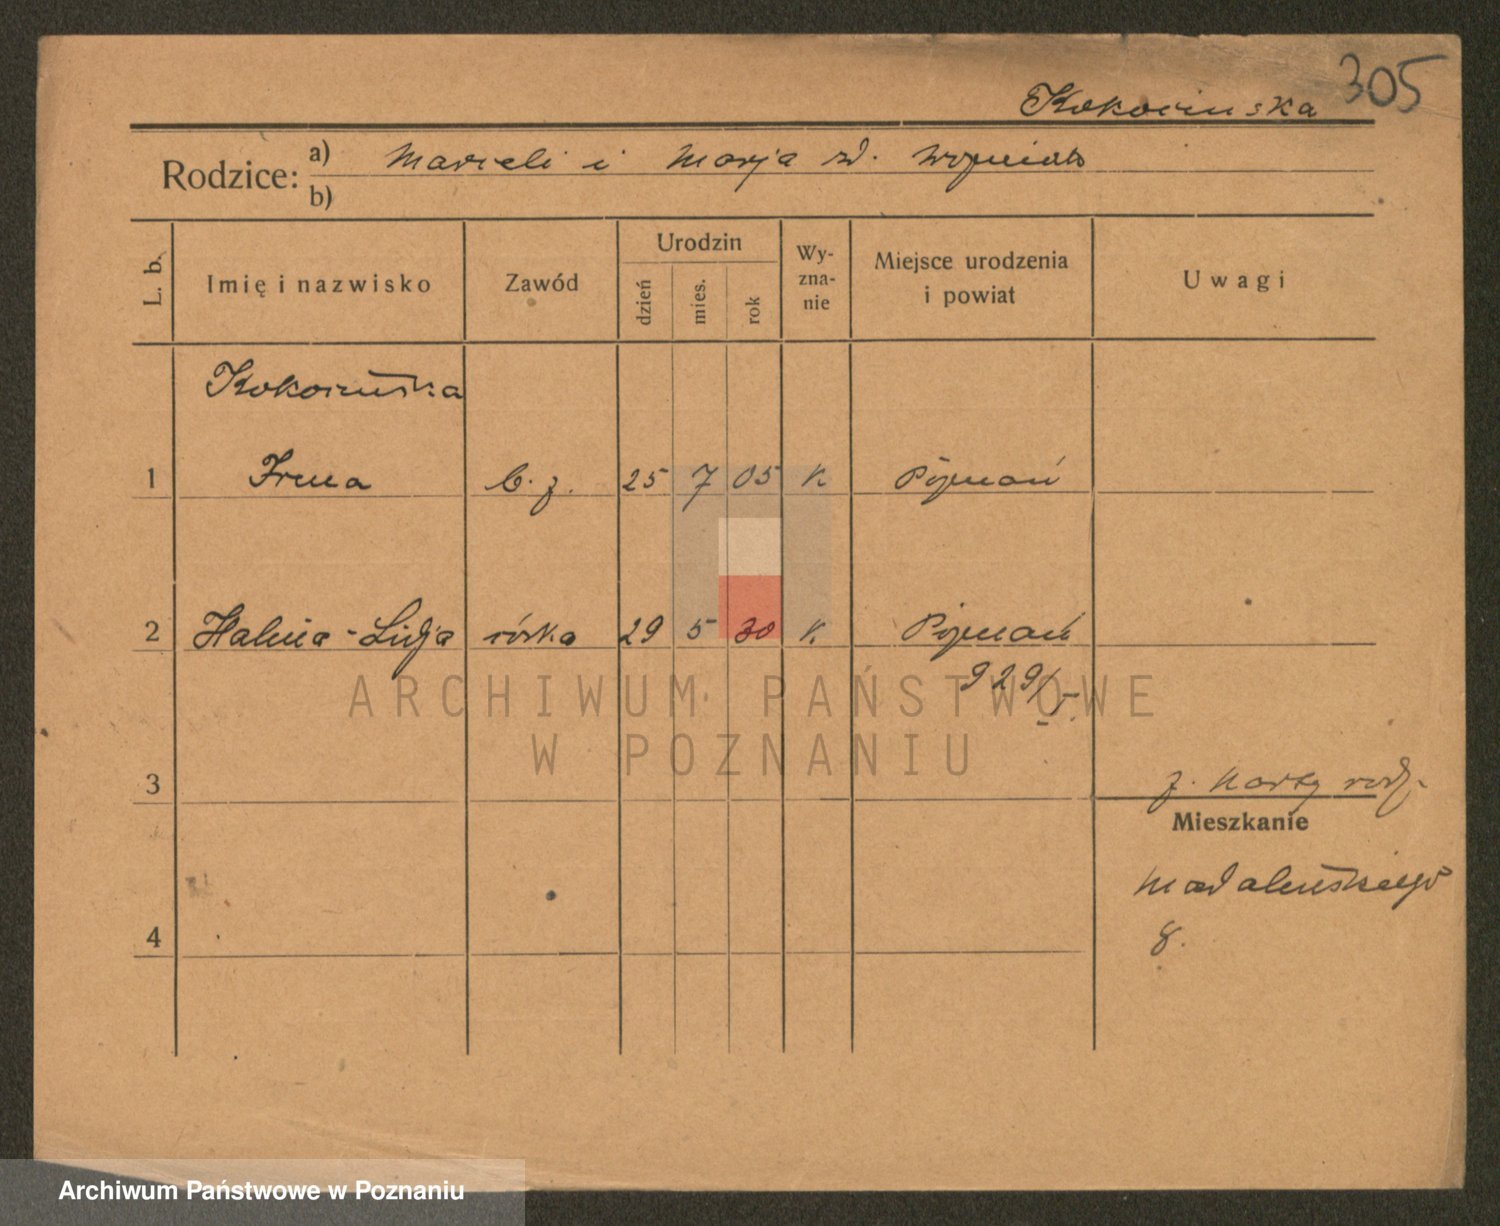 305
Kokocińska
Rodzice: a) Marceli i Marja zd. Woźniak
b)
L. b. Imię i nazwisko Zawód Urodzin dzień mies. rok Wy-zna-nie Miejsce urodzenia i powiat Uwagi
Kokocińska
1 Irena b. z. 25 7 05 k Poznań
2 Halina-Lidja córka 29 5 30 k. Poznań
929/V.
ARCHIWUM PAŃSTWOWE
W POZNANIU
3 z. karty rodz.
Mieszkanie
Madalińskiego
8.
4
Archiwum Państwowe w Poznaniu